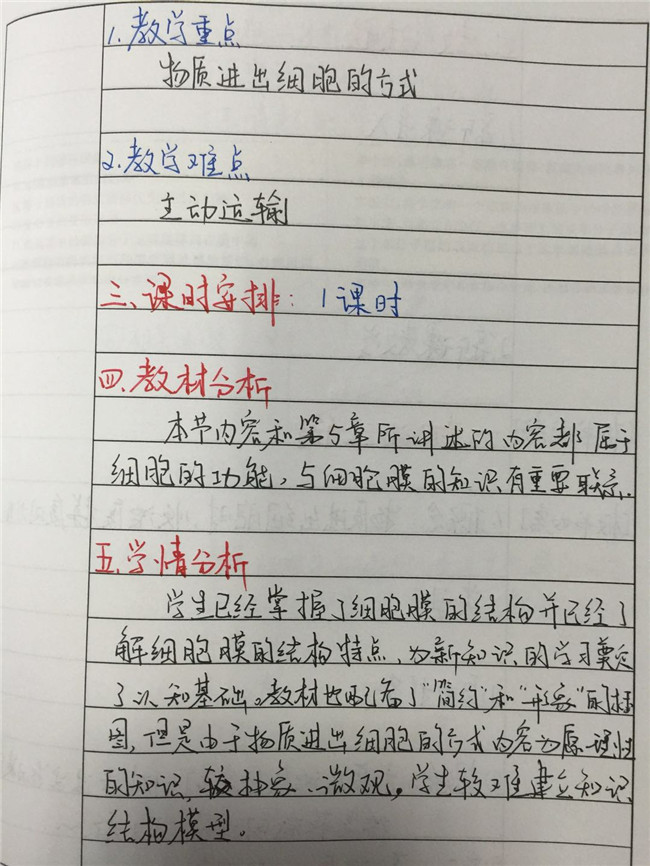 1.教学重点
物质进出细胞的方式
2.教学难点
主动运输
三、课时安排：1课时
四.教材分析
本节内容和第5章所讲述的内容都属于
细胞的功能，与细胞膜的知识有重要联系.
五.学情分析
学生已经掌握了细胞膜的结构并已经了
解细胞膜的结构特点，为新知识的学习奠定
了认知基础。教材也配备了“简约”和“形象”的插
图，但是由于物质进出细胞的方式内容为原理性
的知识，较抽象、微观。学生较难建立知识
结构模型。